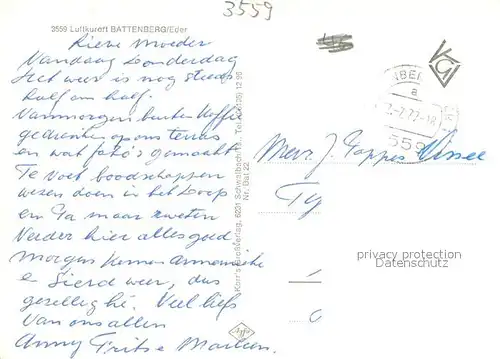 3559
3559 Luftkurort BATTENBERG/Eder
Lieve Moeder
Vandaag Donderdag
Het weer is nog steeds
half om half.
Vanmorgen buiten koffie
gedronken op ons terras
en wat foto's gemaakt
Te voet boodschappen
wezen doen in het
en Ja maar zweten
Verder hier alles goed
morgen komen Annemieke
e Sierd weer, dus
gezellig hé. Veel liefs
van ons allen
Anny Frits e
Mevr. J.
a
3559
Korr's Großverlag, 6231 Schwalbach/Ts., Tel.
Nr. Bat 22
Agfa
privacy protection
Datenschutz